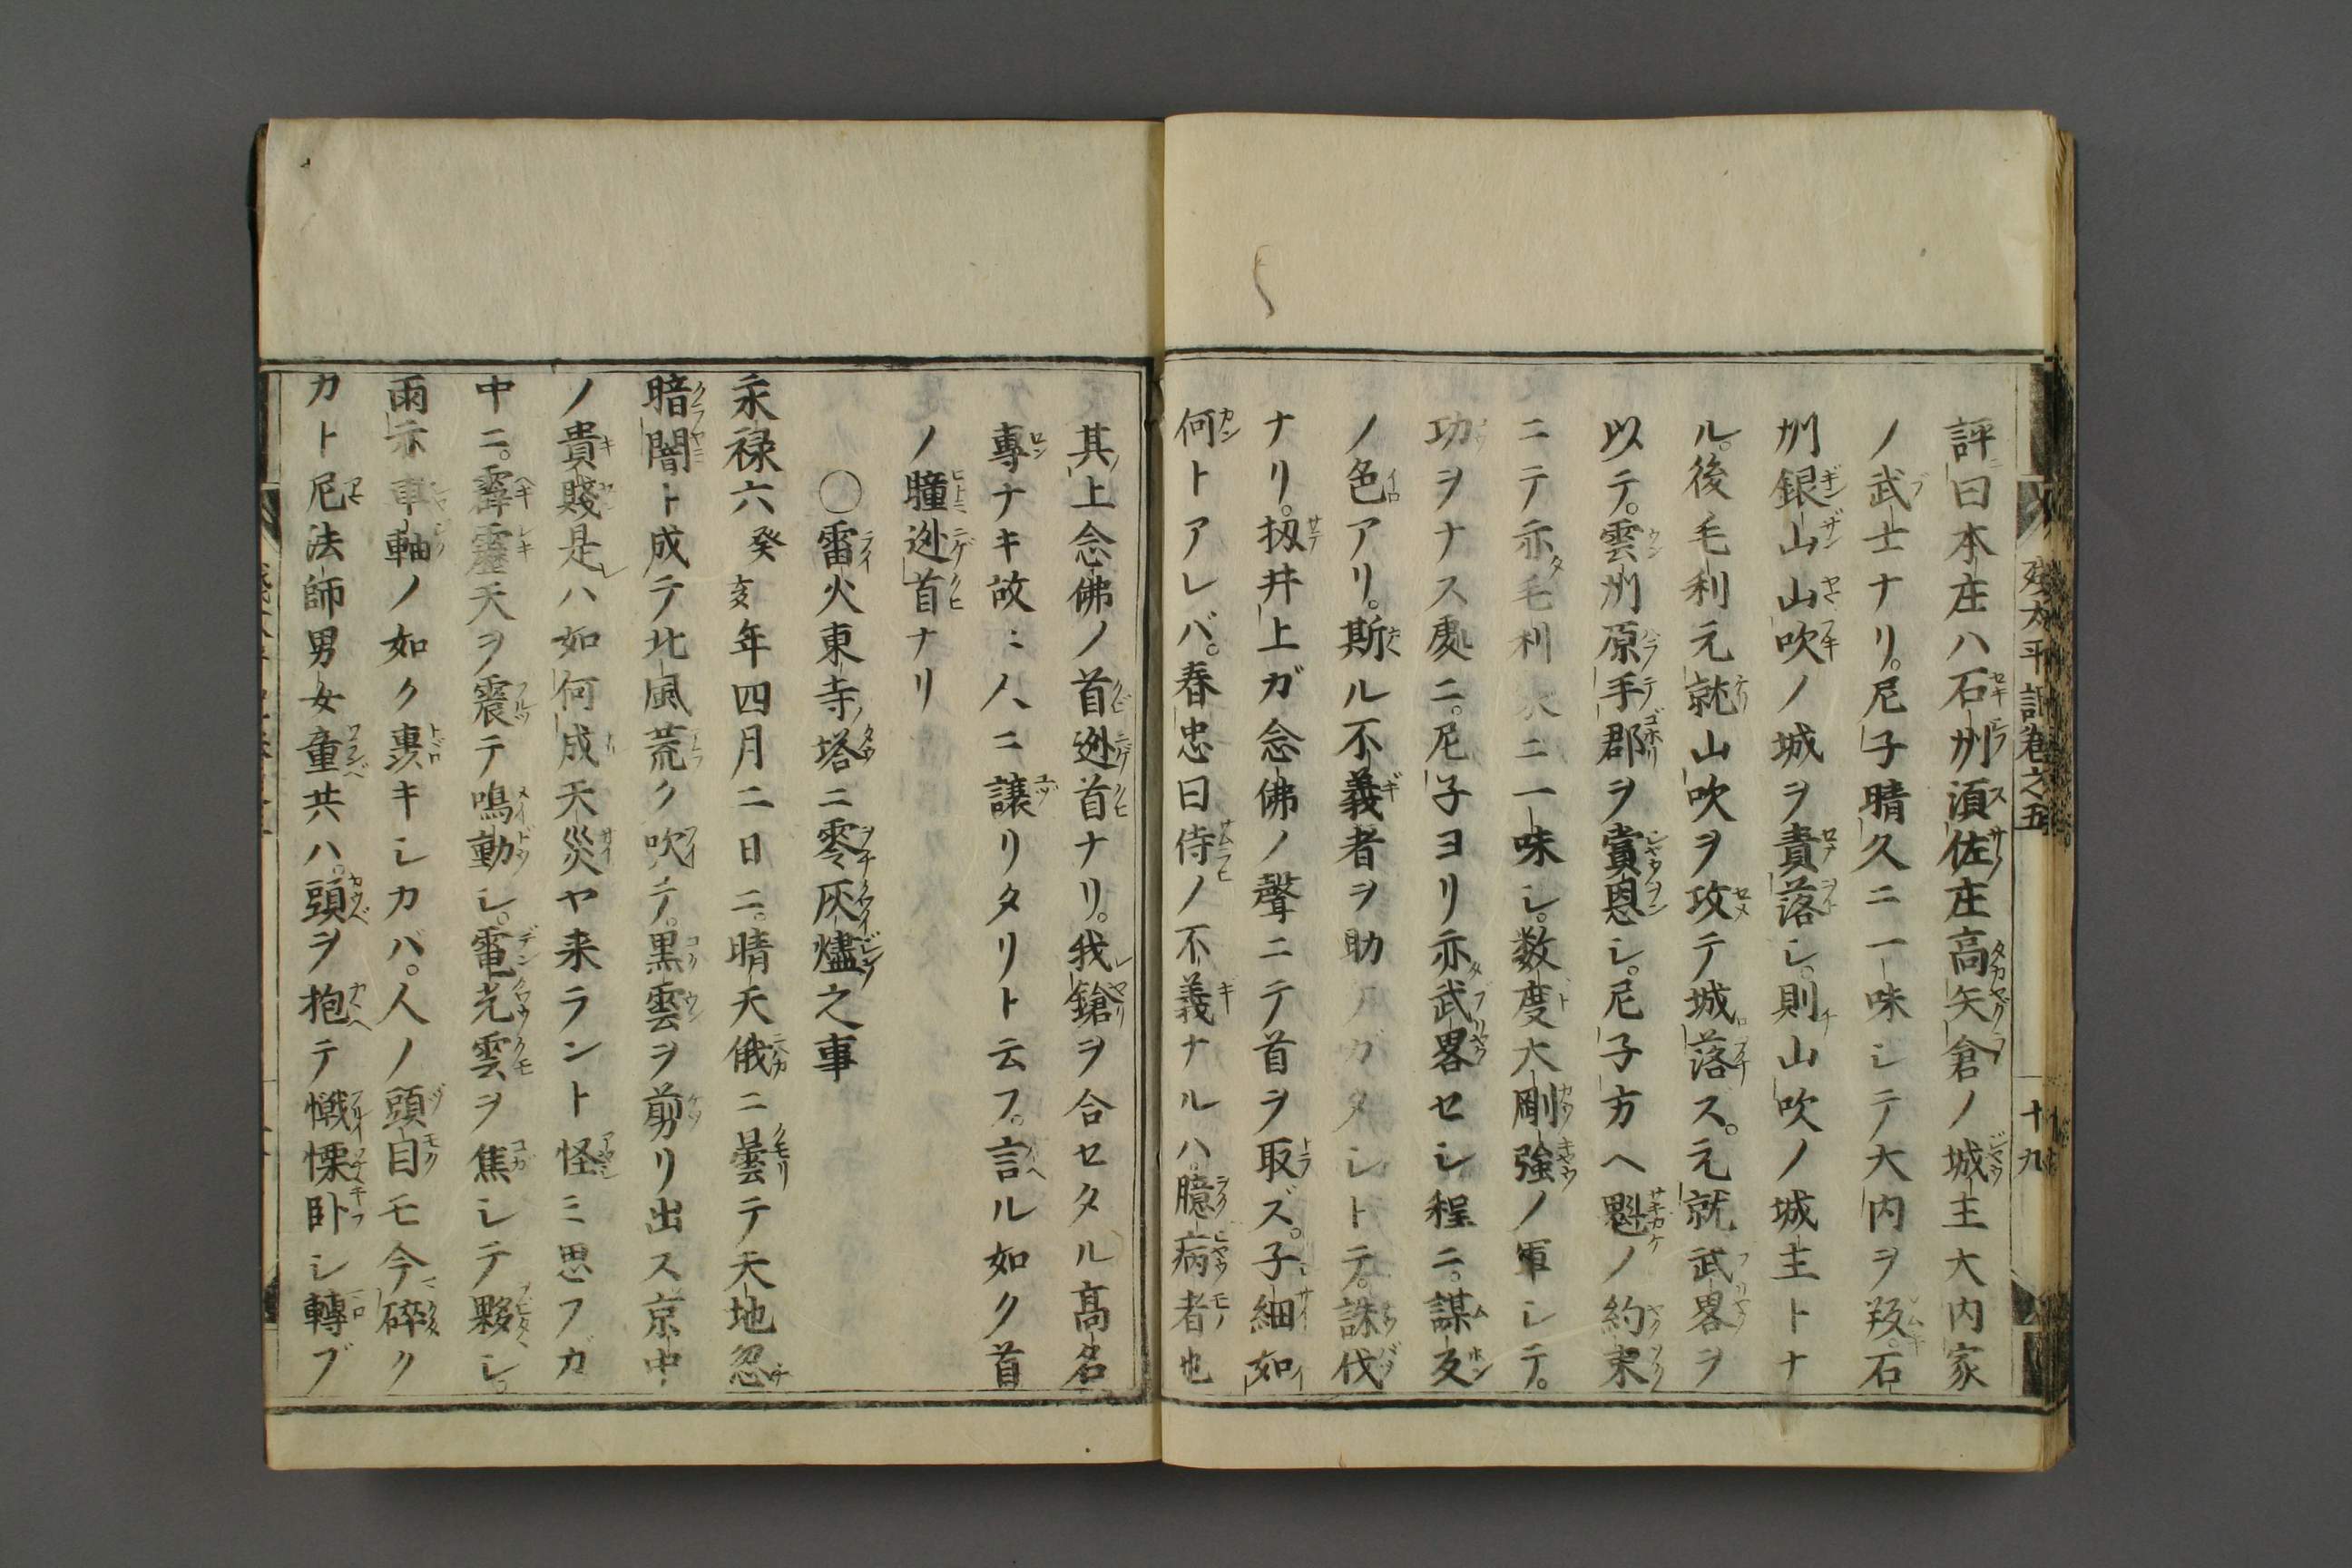 評曰本庄ハ石州須佐庄高矢倉ノ城主大内家
ノ武士ナリ。尼子晴久ニ一味シテ大内ヲ叛。石
州銀山山吹ノ城ヲ責落シ。則山吹ノ城主トナ
ル。後毛利元就山吹ヲ攻テ城落ス。元就武畧ヲ
以テ。雲州原手郡ヲ賞恩シ。尼子方ヘ魁ノ約束
ニテ亦毛利家ニ一味シ。数度大剛強ノ軍シテ。
功ヲナス處ニ。尼子ヨリ亦武畧セシ程ニ。謀反
ノ色アリ。斯ル不義者ヲ助ケガタシトテ。誅伐
ナリ。扨井上ガ念佛ノ聲ニテ首ヲ取ズ。子細如
何トアレバ。春忠曰侍ノ不義ナルハ臆病者也
其上念佛ノ首迯首ナリ。我鎗ヲ合セタル高名
專ナキ故ニ人ニ譲リタリト云フ。言ル如ク首
ノ瞳迯首ナリ
○雷火東寺塔ニ零灰燼之事
永禄六癸亥年四月二日ニ。晴天俄ニ曇テ天地忽
暗闇ト成テ北風荒ク吹テ。黒雲ヲ剪リ出ス京中
ノ貴賤是ハ如何成天災ヤ来ラント怪ミ思フガ
中ニ。霹靂天ヲ震テ鳴動シ。電光雲ヲ焦シテ夥シ。
雨亦車軸ノ如ク裏キシカバ。人ノ頭目モ今碎ク
カト尼法師男女童共ハ。頭ヲ抱テ懺慄卧シ轉ブ
残太平記巻之五
十九